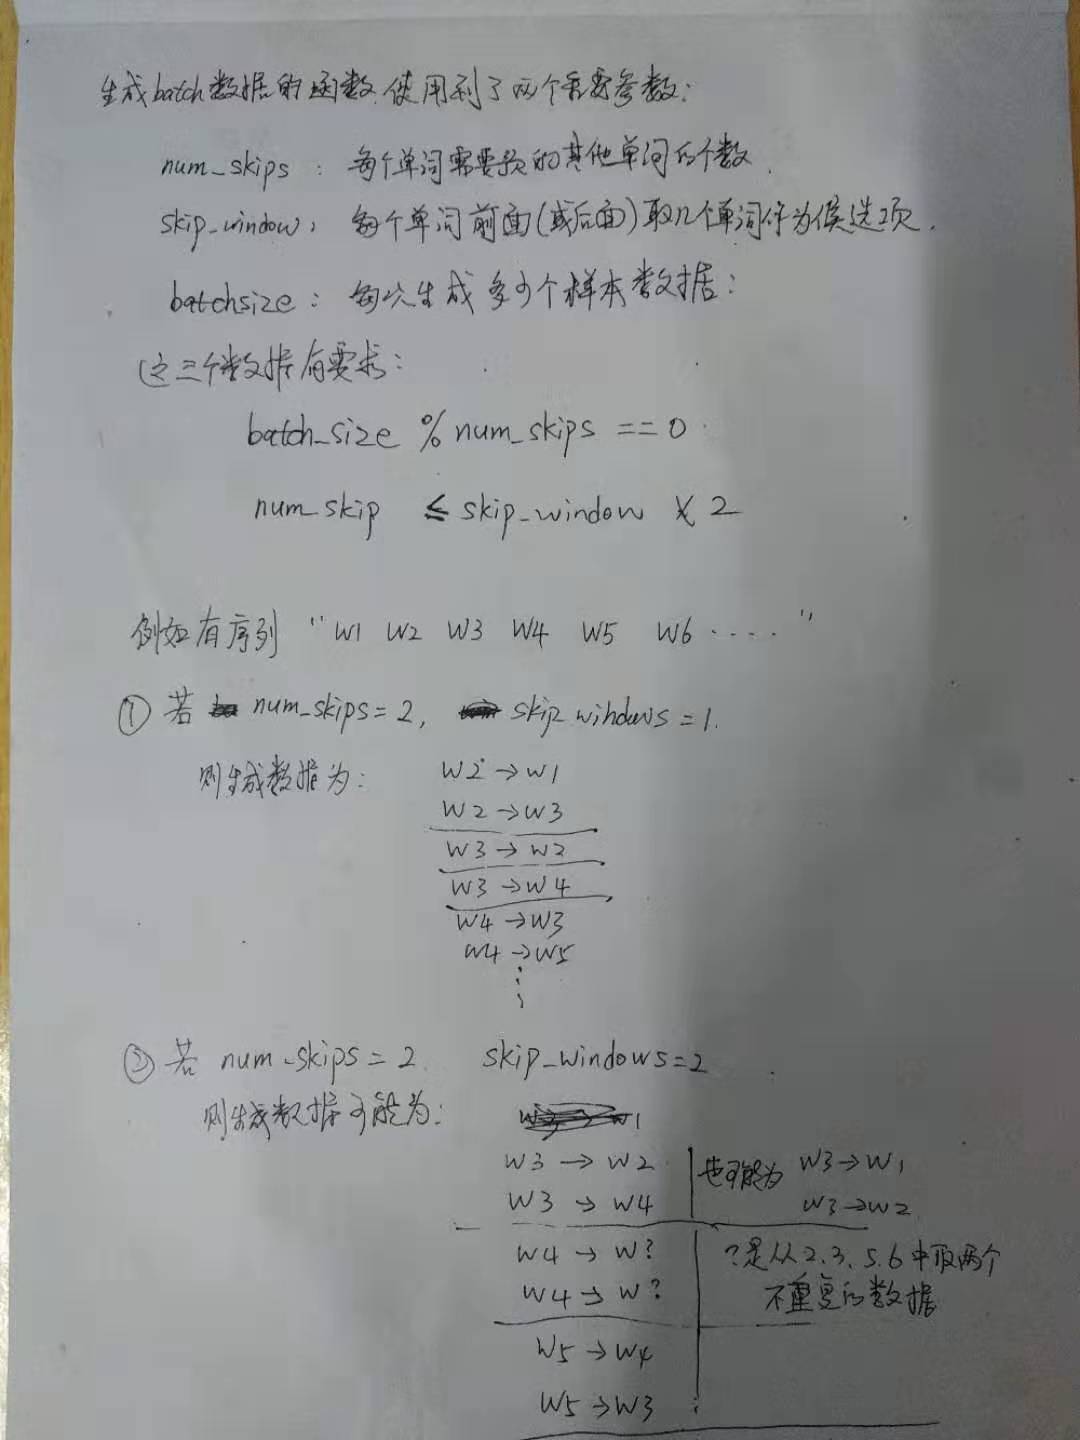 生成batch数据的函数,使用到了两个重要参数:
num_skips : 每个单词需要预的其他单词的个数.
skip_window: 每个单词前面(或后面)取几个单词作为候选项.
batchsize: 每次生成多少个样本数据:
这三个数据有要求:
batch_size % num_skips == 0
num_skip ≤ skip_window × 2
例如有序列 "W1 W2 W3 W4 W5 W6 ....."
① 若 num_skips=2, skip windows=1.
则生成数据为: W2→W1
W2→W3
W3→W2
W3→W4
W4→W3
W4→W5
② 若 num_skips=2 skip_windows=2
则生成数据可能为:
W3→W2 也可能为 W3→W1
W3→W4 W3→W2
W4→W? ?是从2.3、5.6中取两个
W4→W? 不重复的数据
W5→W4
W5→W3